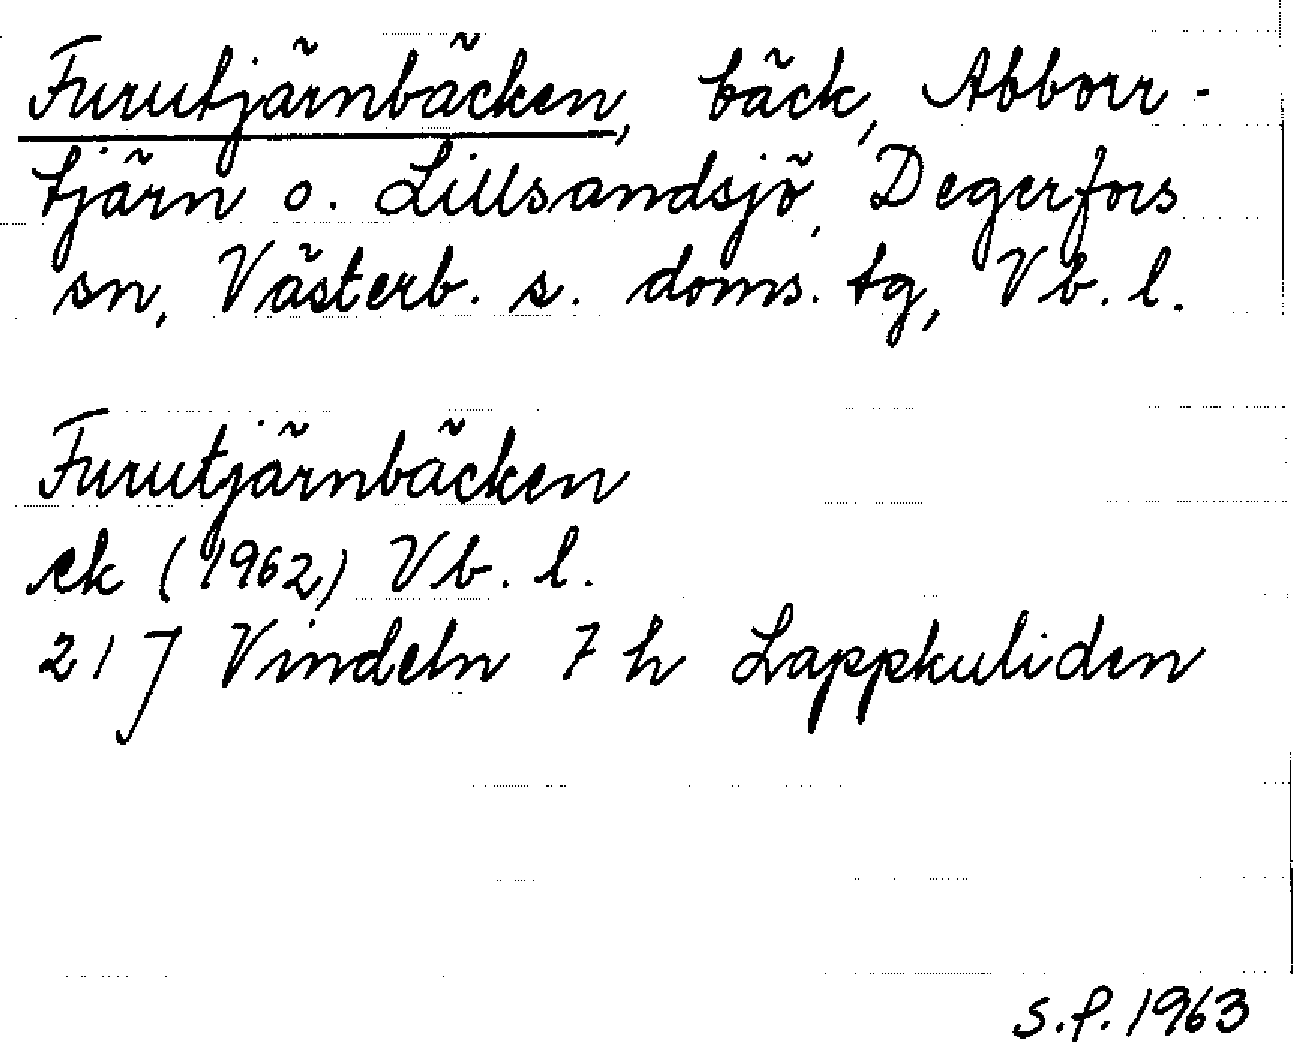 Furutjärnbäcken, bäck, Abborr-
tjärn o. Lillsandsjö, Degerfors
sn, Västerb. s. doms. tg, Vb. l.
Furutjärnbäcken
ek (1962) Vb. l.
21 J Vindeln 7 h Lappkuliden
S.P. 1963